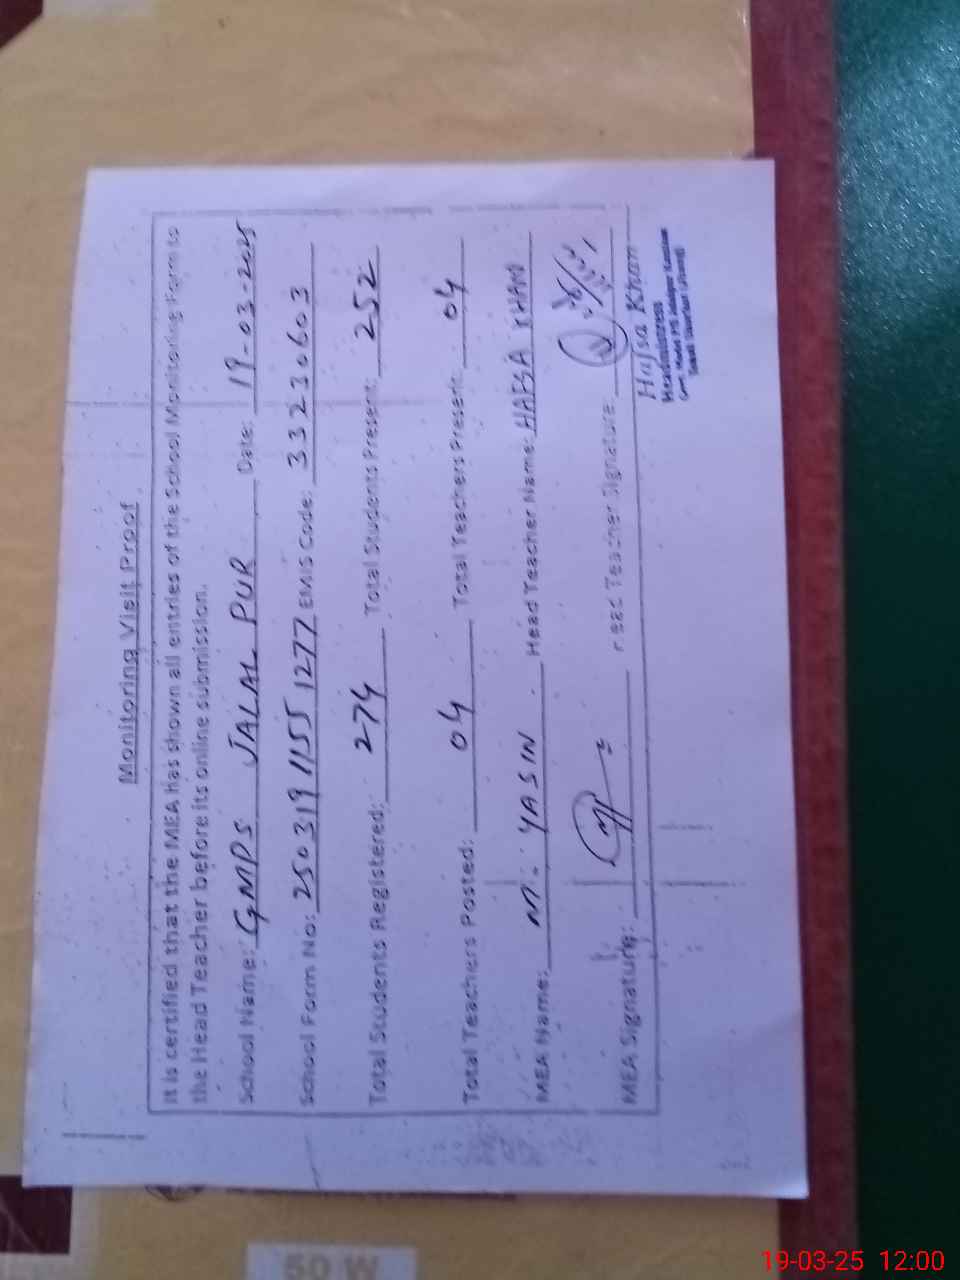 Monitoring Visit Proof
It is certified that the MEA has shown all entries of the School Monitoring Form to
the Head Teacher before its online submission.
School Name: GMPS JALAL PUR Date: 19-03-2025
School Form No: 25031911551277 EMIS Code: 33230603
Total Students Registered: 274 Total Students Present: 252
Total Teachers Posted: 04 Total Teachers Present: 04
MEA Name: M. YASIN Head Teacher Name: HAFSA KHAN
MEA Signature: Head Teacher Signature:
Hafsa Khan
Headmistress
50 W
19-03-25 12:00